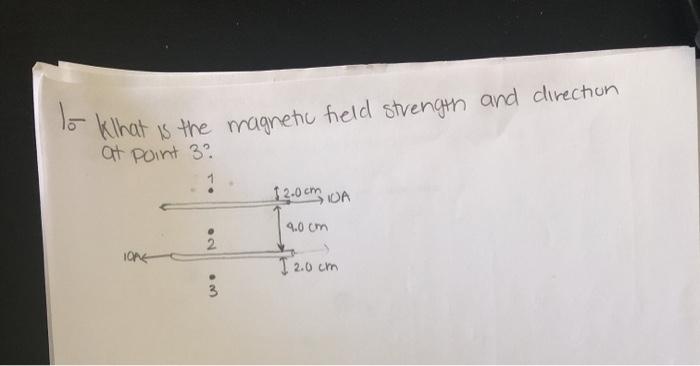 1.- What is the magnetic field strength and direction
at point 3?
1
2.0 cm
10A
4.0 cm
2
10A
2.0 cm
3